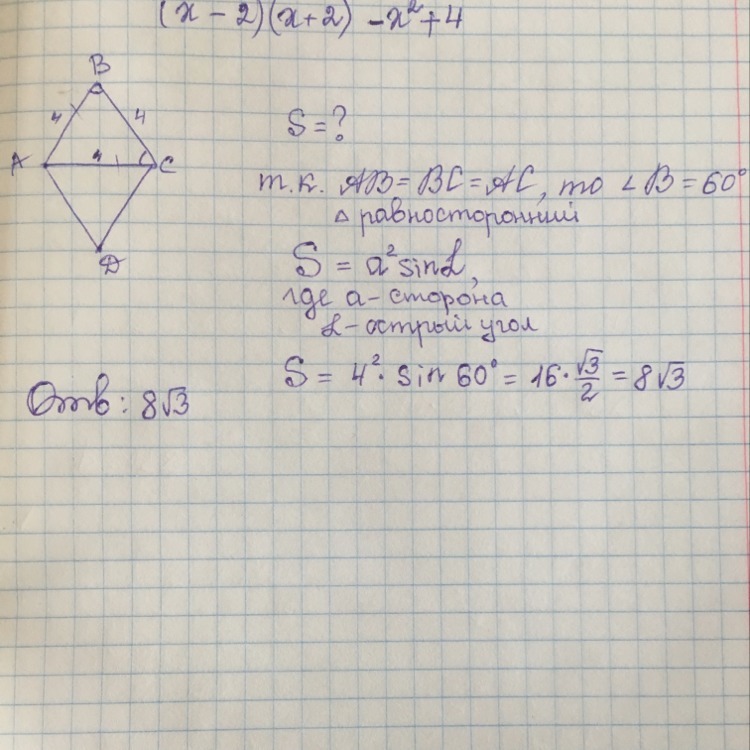 (x - 2)(x+2) -x²+4
B
4 4
A 4 C
D
S = ?
т.к. AB = BC = AC, то ∠B = 60°
△ равносторонний
S = a² sin α,
где a - сторона
α - острый угол
S = 4² · sin 60° = 16 · √3/2 = 8√3
Отв: 8√3